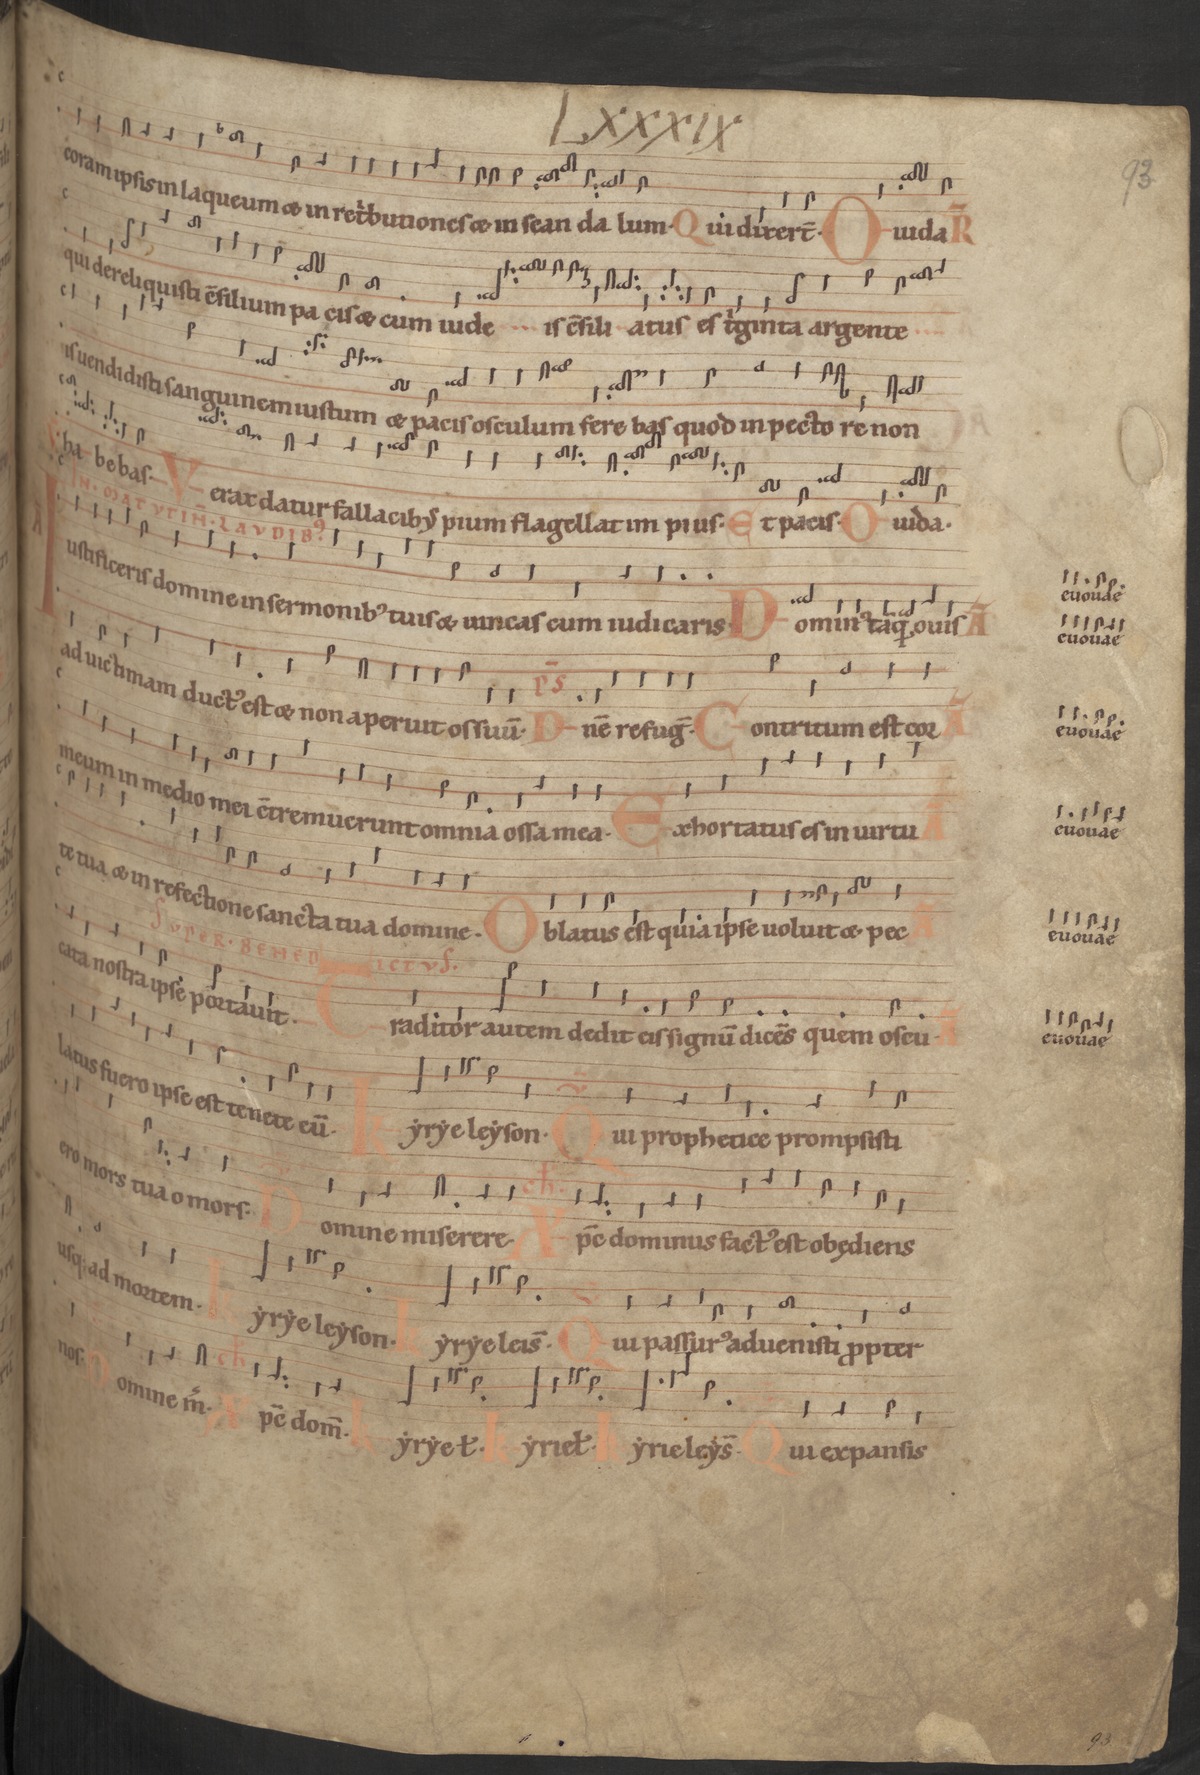 LXXXIX
93
coram ipsis in laqueum & in ret̾butiones & in scan da lum· Q ui dixer̄t· O iuda R̃
qui dereliquisti c̄silium pa cis & cum iude is c̄sili atus es t̾ginta argente
is uendidisti sanguinem iustum & pacis osculum fere bas quod in pecto re non
ha be bas· V erax datur fallacib; pium flagellat im pius· E t pacis· O iuda·
IN MATVTIÑ LAVDIB9
I ustificeris domine in sermonib; tuis & uincas cum iudicaris· D omin9 tāq̃ ouis Ã euouae
ad uictimam duct9 est & non aperuit os suū· p̄s D n̄e refug̃· C ontritum est cor Ã euouae
meum in medio mei c̄tremuerunt omnia ossa mea· E xhortatus es in uirtu A euouae
te tua & in refectione sancta tua domine· O blatus est quia ipse uoluit & pec A euouae
SVPER BENEDICTVS·
cata nostra ipse portauit· T raditor autem dedit eis signū dicēs quem oscu A euouae
latus fuero ipse est tenete eū· k ẏrẏeleẏson· Q ui prophetice prompsisti
ero mors tua o mors· D omine miserere· ch̃· X p̄c dominus fact9 est obediens
usq; ad mortem· k ẏrẏeleẏson· k ẏrẏeleis̄· Q ui passur9 aduenisti ꝓpter
nos· D omine m̃· ch̃ X p̄c dom̃· k ẏrẏeł· k ẏrieł· k ẏrieleẏs̄· Q ui expansis
93